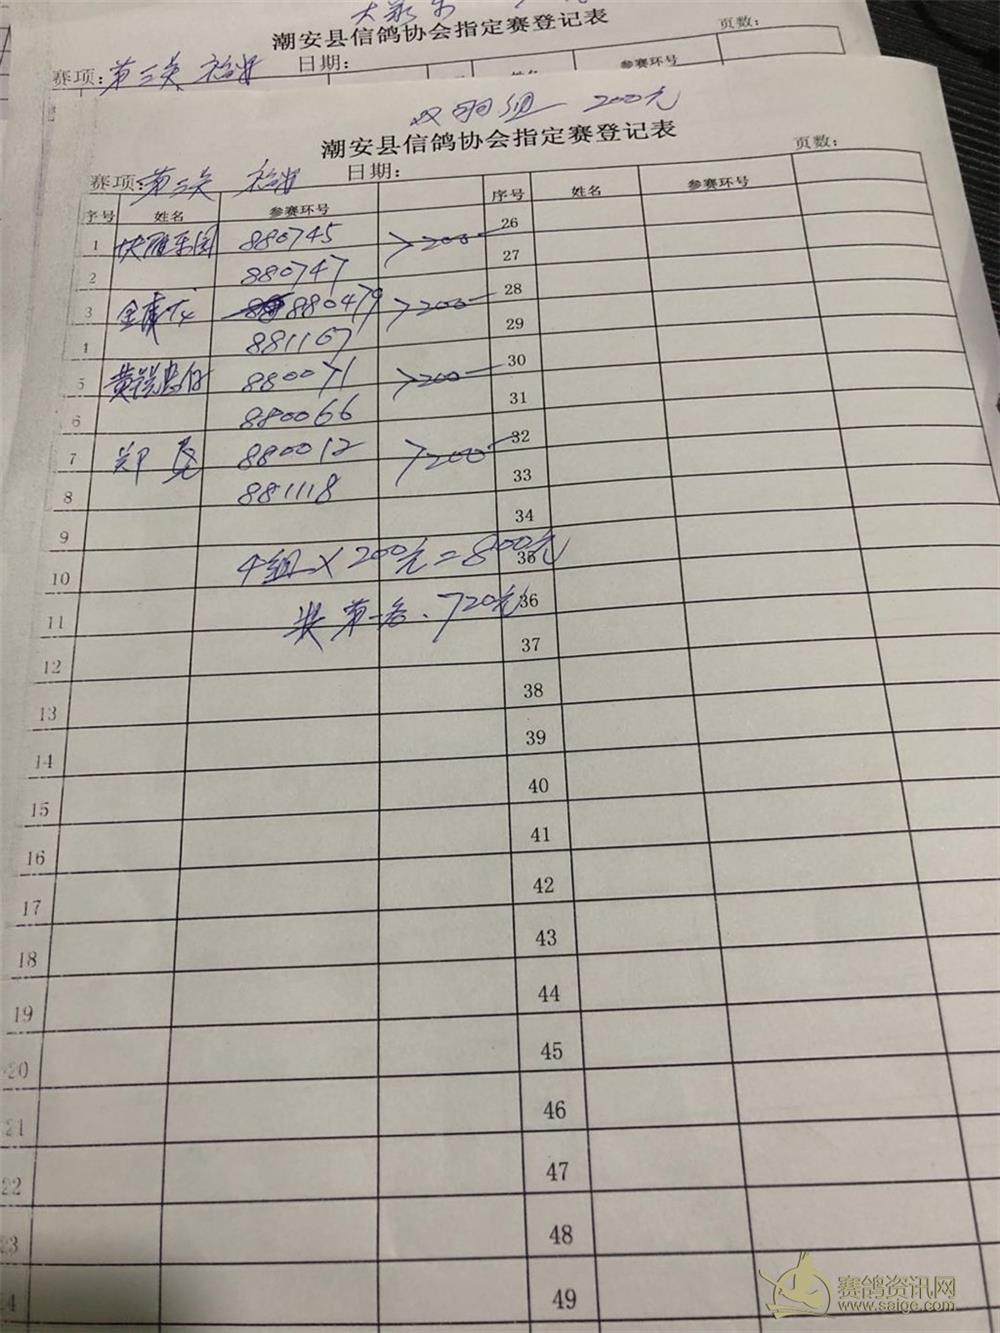 潮安县信鸽协会指定赛登记表
页数:
赛项:第三关 日期:
姓名 参赛环号
双羽组 200元
潮安县信鸽协会指定赛登记表
页数:
赛项:第三关 日期:
序号 姓名 参赛环号 序号 姓名 参赛环号
1 880745 >200— 26
2 880747 27
3 880479 >200— 28
4 881167 29
5 880071 >200— 30
6 880066 31
7 郑 880012 >200— 32
8 881118 33
9 34
10 4组×200元=800元 35
11 奖第一名.720元 36
12 37
13 38
14 39
15 40
16 41
17 42
18 43
19 44
20 45
21 46
22 47
23 48
24 49
赛鸽资讯网
www.saige.com